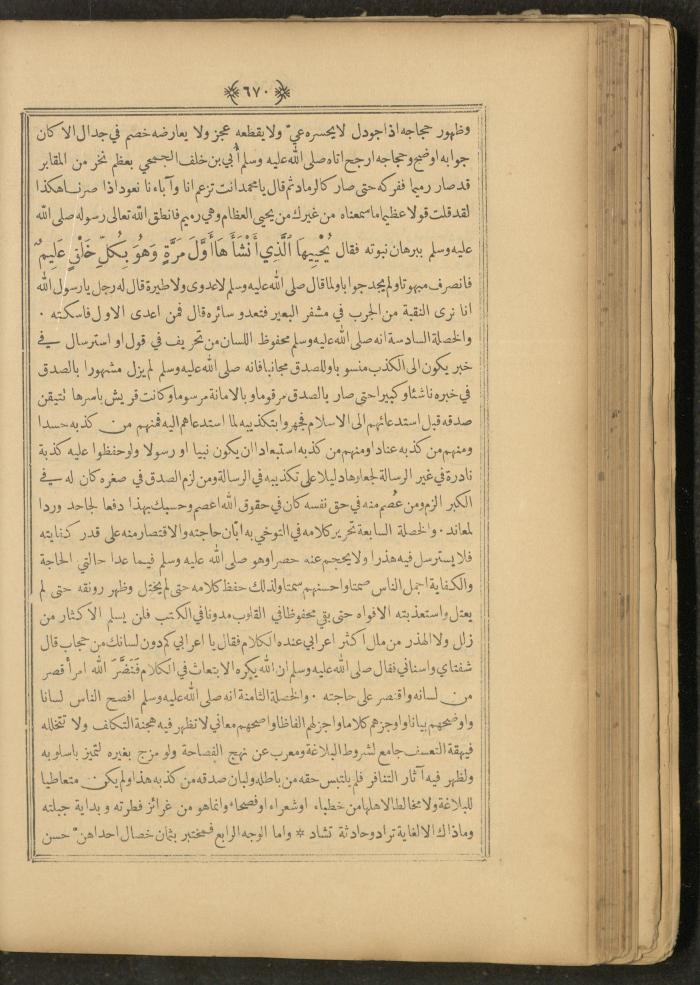 ﴿٦٧٠﴾
وظهور حجاجه اذا جودل لا يحسره عيّ ولا يقطعه عجز ولا يعارضه خصم في جدال الا كان
جوابه اوضح وحجاجه ارجح اتاه صلى الله عليه وسلم أبي بن خلف الجمحي بعظم نخر من المقابر
قد صار رميما ففركه حتى صار كالرماد ثم قال يا محمد انت تزعم انا وآباءنا نعود اذا صرنا هكذا
لقد قلت قولا عظيما ما سمعناه من غيرك من يحيي العظام وهي رميم فانطق الله تعالى رسوله صلى الله
عليه وسلم ببرهان نبوته فقال يُحْيِيهَا الَّذِي أَنْشَأَهَا أَوَّلَ مَرَّةٍ وَهُوَ بِكُلِّ خَلْقٍ عَلِيمٌ
فانصرف مبهوتا ولم يجد جوابا ولما قال صلى الله عليه وسلم لا عدوى ولا طيرة قال له رجل يا رسول الله
انا نرى النقبة من الجرب في مشفر البعير فتعدو سائره قال فمن اعدى الاول فاسكته ٠
والخصلة السادسة انه صلى الله عليه وسلم محفوظ اللسان من تحريف في قول او استرسال في
خبر يكون الى الكذب منسوبا وللصدق مجانبا فانه صلى الله عليه وسلم لم يزل مشهورا بالصدق
في خبره ناشئا وكبيرا حتى صار بالصدق مرقوما وبالامانة مرسوما وكانت قريش باسرها تتيقن
صدقه قبل استدعائهم الى الاسلام فجهروا بتكذيبه لما استدعاهم اليه فمنهم من كذبه حسدا
ومنهم من كذبه عنادا ومنهم من كذبه استبعادا ان يكون نبيا او رسولا ولو حفظوا عليه كذبة
نادرة في غير الرسالة لجعلوها دليلا على تكذيبه في الرسالة ومن لزم الصدق في صغره كان له في
الكبر الزم ومن عُصم منه في حق نفسه كان في حقوق الله اعصم وحسبك بهذا دفعا لجاحد وردا
لمعاند ٠ والخصلة السابعة تحرير كلامه في التوخي به ابّان حاجته والاقتصار منه على قدر كفايته
فلا يسترسل فيه هذرا ولا يحجم عنه حصرا وهو صلى الله عليه وسلم فيما عدا حالتي الحاجة
والكفاية اجمل الناس صمتا واحسنهم سمتا ولذلك حفظ كلامه حتى لم يختل وظهر رونقه حتى لم
يعتل واستعذبته الافواه حتى بقي محفوظا في القلوب مدونا في الكتب فلن يسلم الاكثار من
زلل ولا الهذر من ملل اكثر اعرابي عنده الكلام فقال يا اعرابي كم دون لسانك من حجاب قال
شفتاي واسناني فقال صلى الله عليه وسلم ان الله يكره الانبعاث في الكلام فَنَضَّرَ الله امرأ قصر
من لسانه واقتصر على حاجته ٠ والخصلة الثامنة انه صلى الله عليه وسلم افصح الناس لسانا
واوضحهم بيانا واوجزهم كلاما واجزلهم الفاظا واصحهم معاني لا تظهر فيه هجنة التكلف ولا تتخلله
فيهقة التعسف جامع لشروط البلاغة ومعرب عن نهج الفصاحة ولو مزج بغيره لتميز باسلوبه
ولظهر فيه آثار التنافر فلم يلتبس حقه من باطله ولبان صدقه من كذبه هذا ولم يكن متعاطيا
للبلاغة ولا مخالطا لاهلها من خطباء او شعراء او فصحاء وانما هو من غرائز فطرته و بداية جبلته
وما ذاك الا لغاية تراد وحادثة تشاد * واما الوجه الرابع فمختبر بثمان خصال احداهنّ حسن